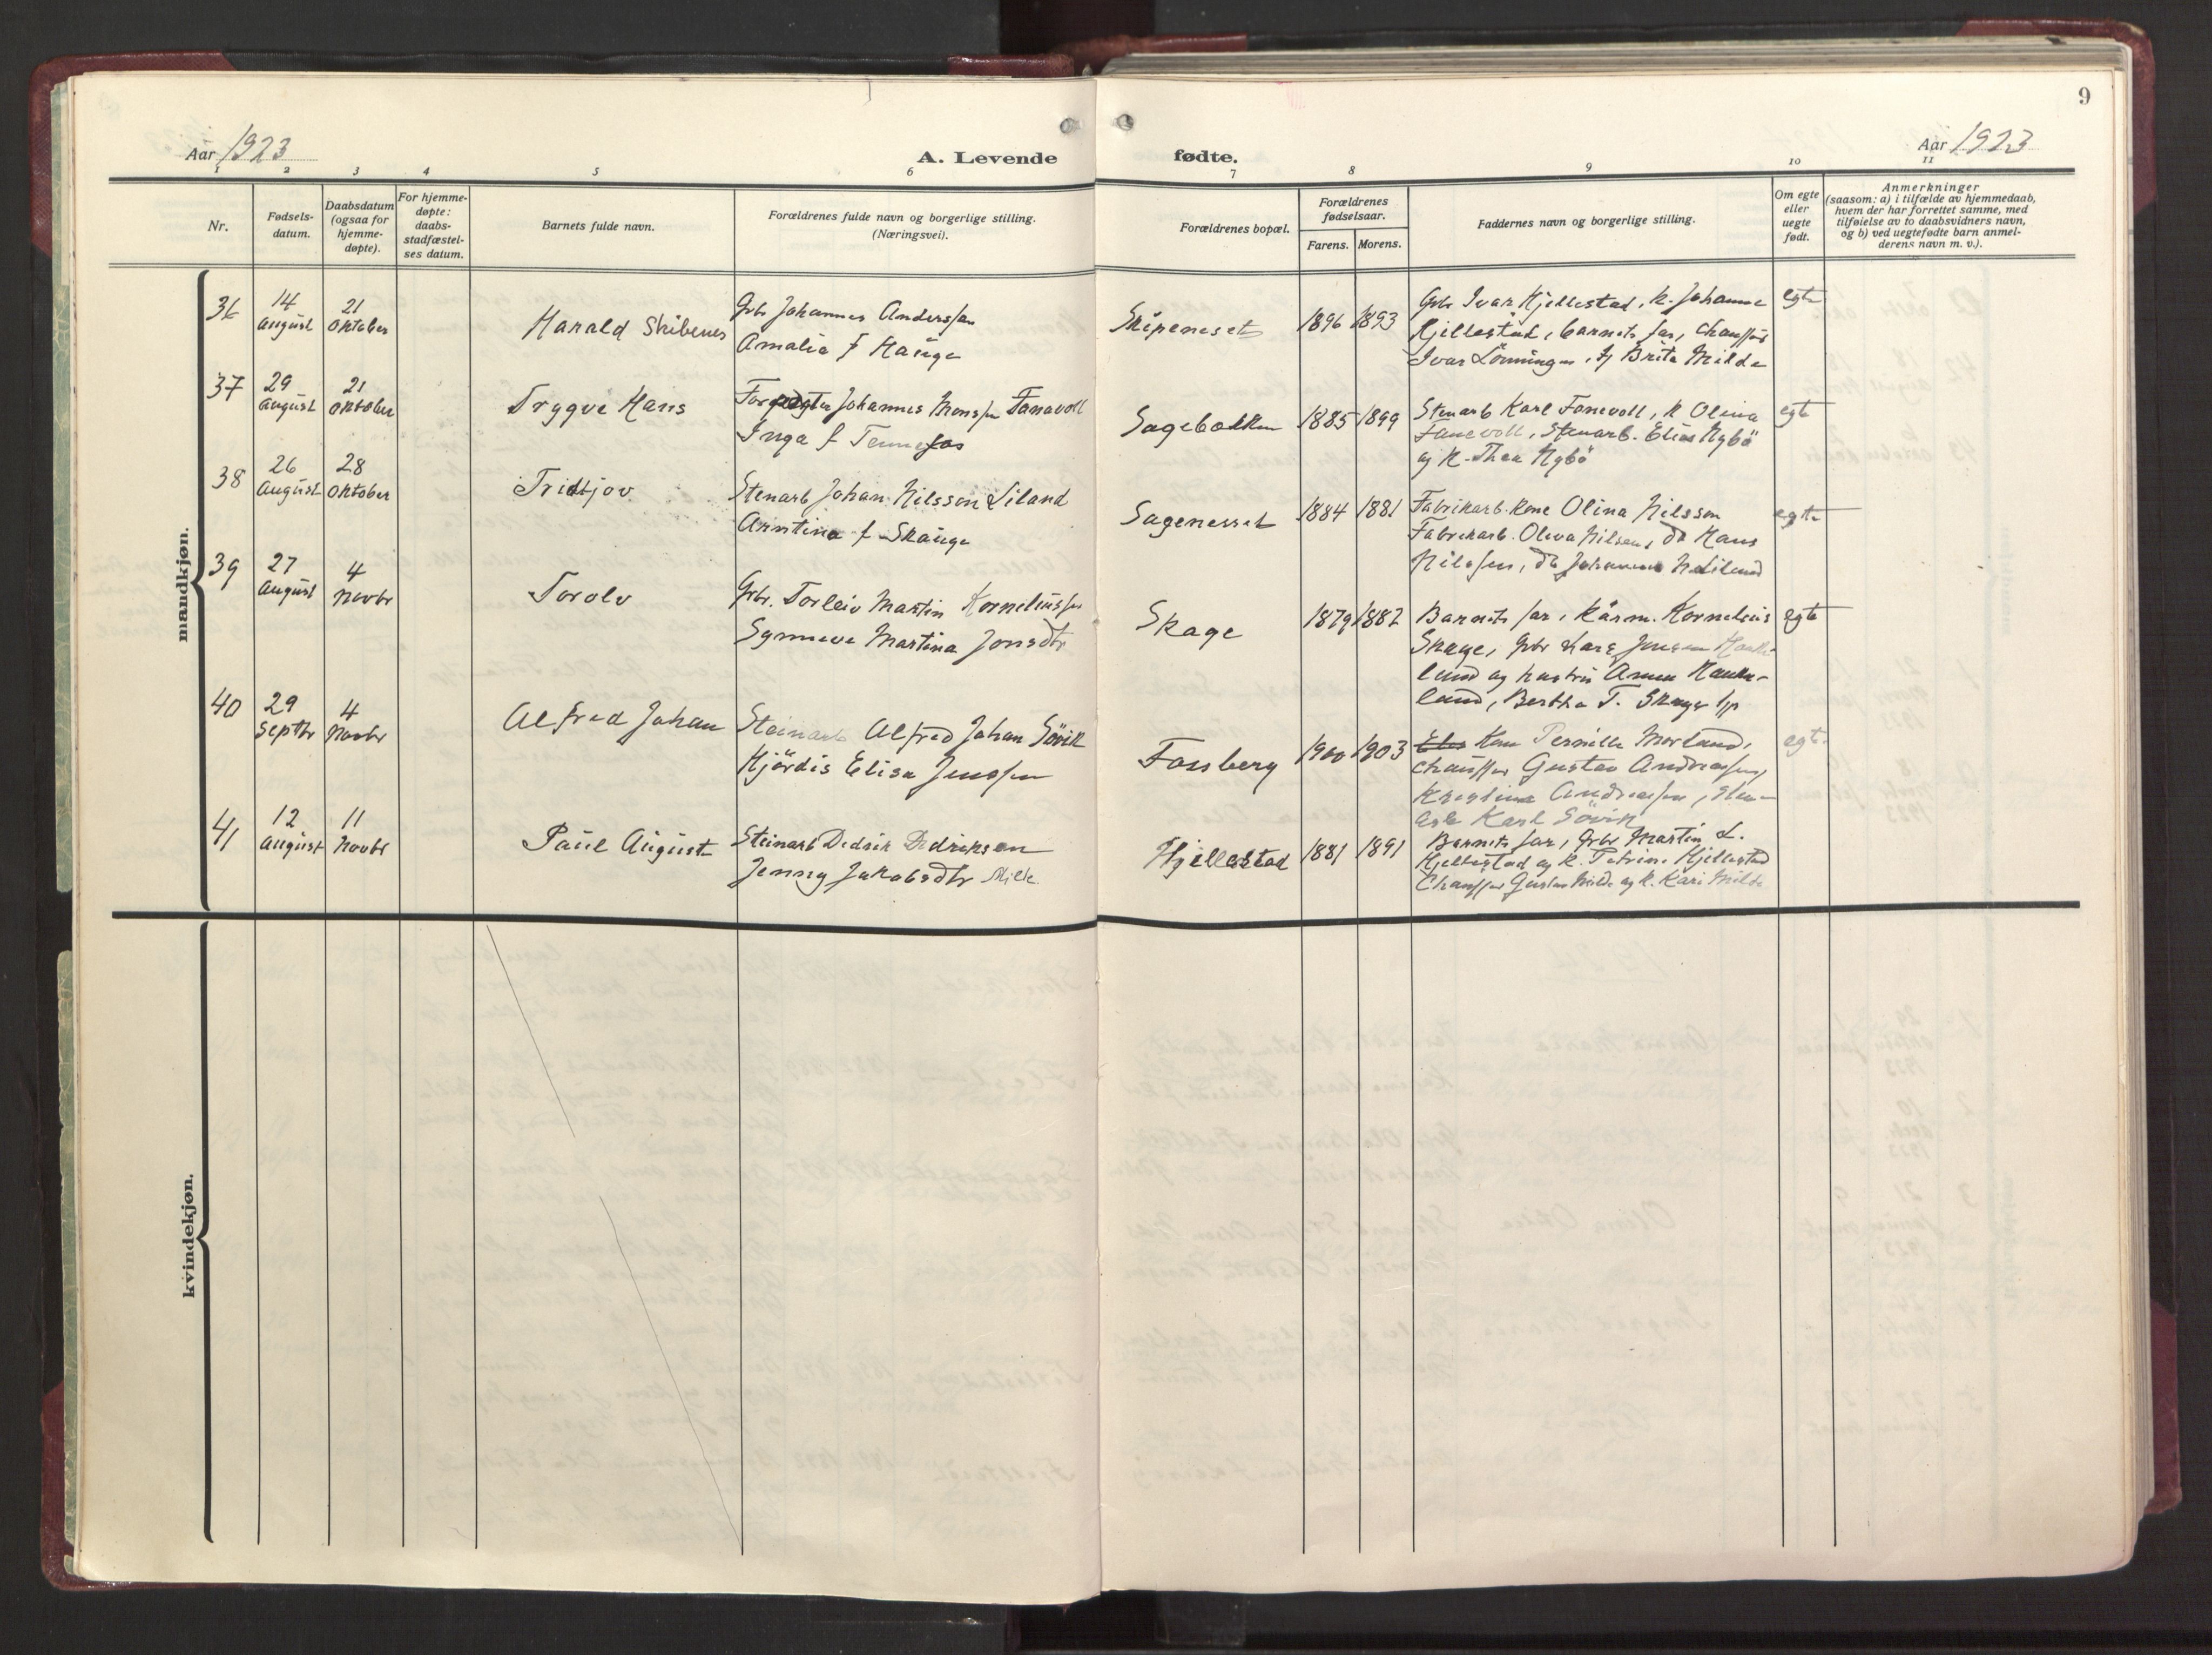 9
Aar 1923
A. Levende
fødte.
Aar 1923
1 2 3 4 5 6 7 8 9 10 11
Nr.
Fødsels-
datum.
Daabsdatum
(ogsaa for
hjemme-
døpte).
For hjemme-
døpte:
daabs-
stadfæstel-
ses datum.
Barnets fulde navn.
Forældrenes fulde navn og borgerlige stilling.
(Næringsvei).
Forældrenes bopæl.
Forældrenes
fødselsaar.
Farens. Morens.
Faddernes navn og borgerlige stilling.
Om egte
eller
uegte
født.
Anmerkninger
(saasom: a) i tilfælde av hjemmedaab,
hvem der har forrettet samme, med
tilføielse av to daabsvidners navn,
og b) ved uegtefødte barn anmel-
derens navn m. v.).
mandkjøn.
36
14
august
21
oktober
Harald Skibenes
Grbr Johannes Anderssen
Amalia f Hauge
Skipeneset
1896 1893
Grbr Ivar Hjellestad, k. Johanne
Hjellestad, barnets far, chauffør
Ivar Lønningen, Brita Milde
egte
37
29
august
21
oktober
Trygve Hans
Forpagter Johannes Monssen Fanavoll
Inga f
Sagebakken
1885 1899
Stenarb Karl Fanevoll, k Olina
Fanevoll, Stenarb. Elias Nybö
og k. Thea Nybö
egte
38
26
august
28
oktober
Fridtjov
Stenarb Johan Nilsson Liland
Arntina f Skauge
Sagenesset
1884 1881
Fabrikarb. kone Olina Nilsson
Fabrikarb. Oleva Nilsen, do Hans
Nilssen, do Johanne N Liland
egte
39
27
august
4
novbr
Torolv
Grbr. Torleiv Martin Korneliussen
Synneve Martina Jonsdtr
Skage
1879 1882
Barnets far, kårm. Kornelius
Skage, Grbr Lars Jensen Hauke-
land og hustru Anna Hauke-
land, Bertha T. Skage
egte
40
29
Septbr
4
Novbr
Alfred Johan
Steinarb Alfred Johan Sövik
Hjördis Elisa Jenssen
Fossberg
1900 1903
Kone Pernille Morland,
chauffør Gustav Andreassen,
Kristine Andreassen, Sten-
arb Karl Sövik
egte
41
12
august
11
Novbr
Paul August
Steinarb Dedrik Dedriksen
Jenny Jakobsdtr Milde
Hjellestad
1881 1891
Barnets far, Grbr Martin L.
Hjellestad og k. Petrine Hjellestad
Chauffør Gustav Milde og k. Kari Milde
kvindekjøn.